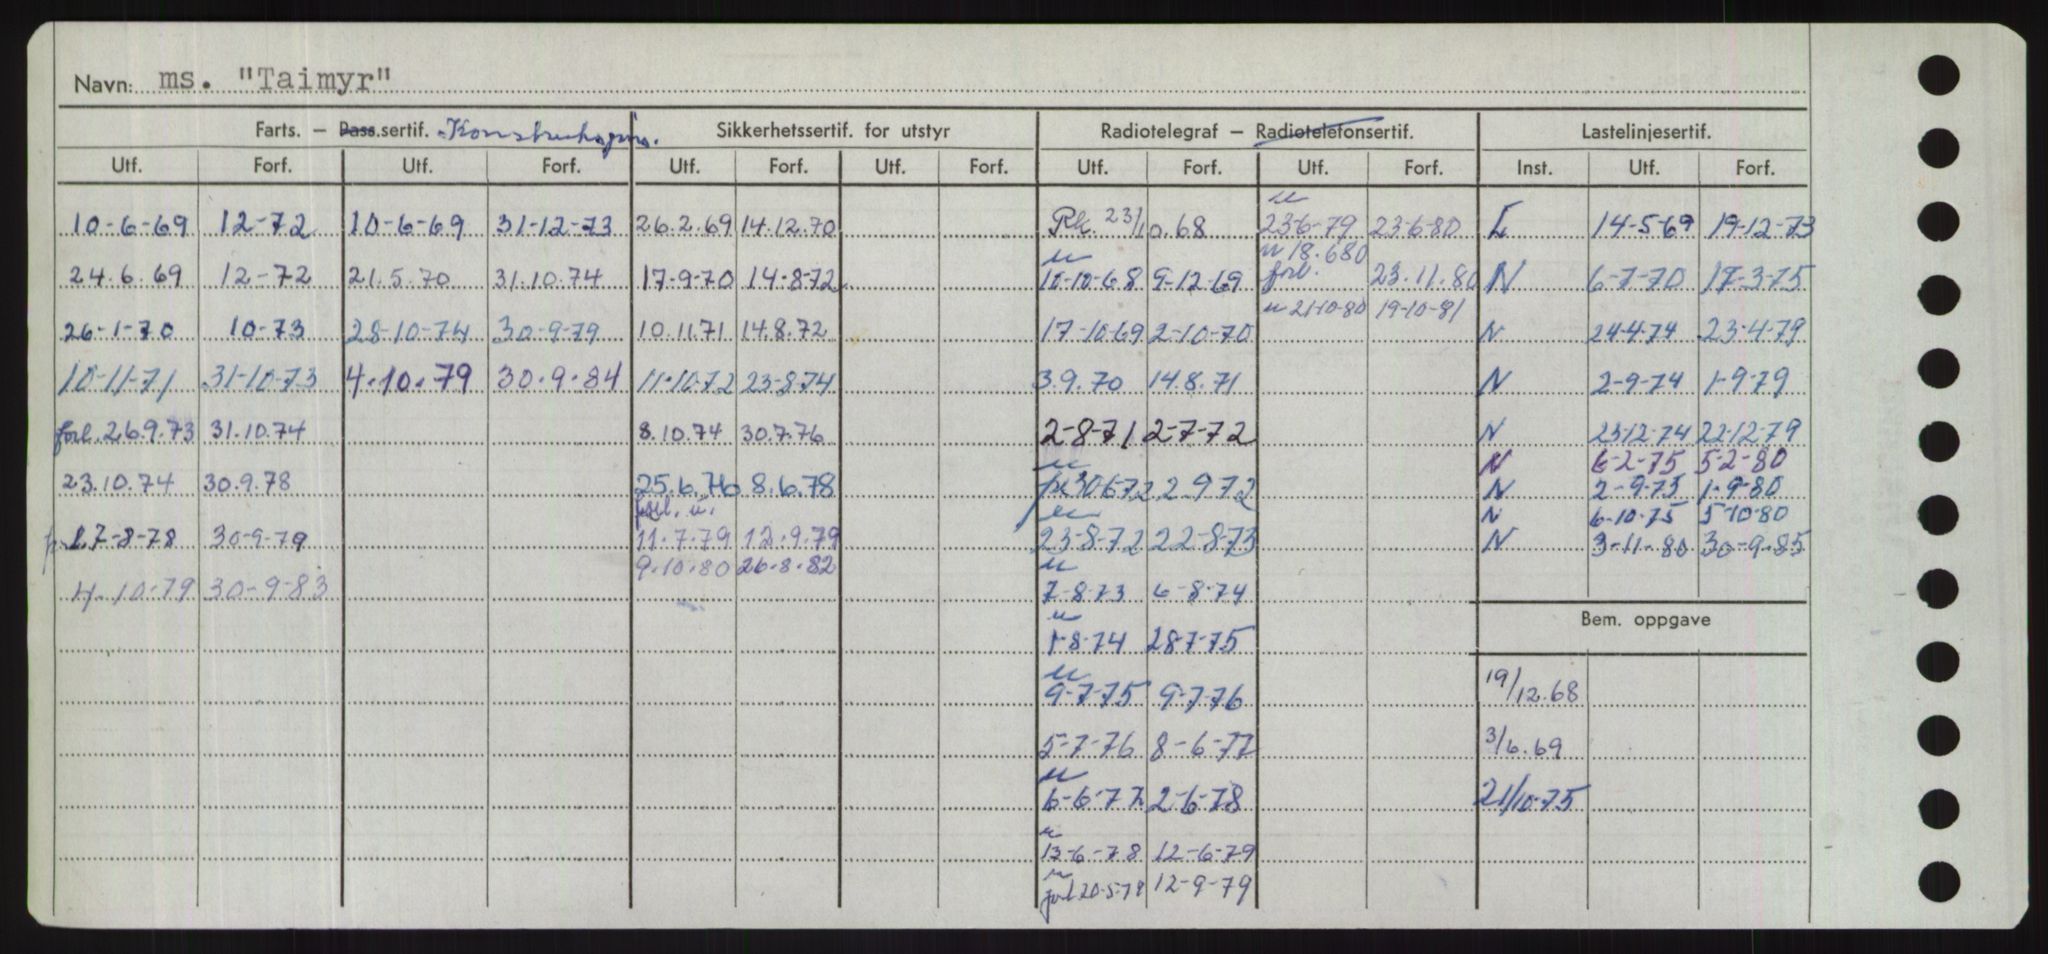 Navn: ms. "Taimyr"
Farts. — Pass.sertif. Konstruksjons. Sikkerhetssertif. for utstyr Radiotelegraf — Radiotelefonsertif. Lastelinjesertif.
Utf. Forf. Utf. Forf. Utf. Forf. Utf. Forf. Utf. Forf. Utf. Forf. Inst. Utf. Forf.
u
10-6-69 12-72 10-6-69 31-12-73 26.2.69 14.12.70 Rk. 23/10.68 23-6-79 23-6-80 L 14-5-69 19-12-73
u u 18.6.80
24.6.69 12-72 21.5.70 31.10.74 17-9-70 14-8-72 10-10-68 9-12-69 forl. 23.11.80 N 6-7-70 17-3-75
u 21-10-80 19-10-81
26-1-70 10-73 28-10-74 30-9-79 10.11.71 14.8.72 17-10-69 2-10-70 N 24-4-74 23-4-79
10-11-71 31-10-73 4.10.79 30.9.84 11-10-72 23-8-74 3.9.70 14.8.71 N 2-9-74 1-9-79
forl. 26.9.73 31.10.74 8.10.74 30.7.76 2-8-71 2-7-72 N 23-12-74 22-12-79
u N 6-2-75 5-2-80
23.10.74 30.9.78 25.6.76 8.6.78 30-6-72 2.9.72 N 2-9-75 1-9-80
forl. u. u N 6-10-75 5-10-80
7-8-78 30-9-79 11.7.79 12.9.79 23-8-72 22-8-73 N 3-11-80 30-9-85
9.10.80 26.8.82 u
4.10-79 30-9-83 7-8-73 6-8-74
u Bem. oppgave
1-8-74 28-7-75
u
9-7-75 9-7-76 19/12.68
5-7-76 8-6-77 3/6.69
u
6-6-77 2-6-78 21/10-75
u
13-6-78 12-6-79
u
forl 20-5-79 12-9-79